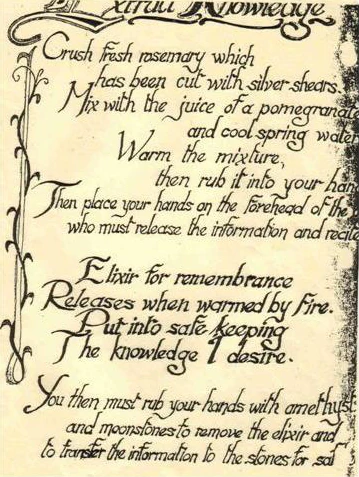 Extract Knowledge
Crush fresh rosemary which
has been cut with silver shears.
Mix with the juice of a
and cool spring
Warm the mixture,
then rub it into your
Then place your hands on the forehead of the
who must release the information and
Elixir for remembrance
Releases when warmed by fire.
Put into safe keeping
The knowledge I desire.
You then must rub your hands with amethyst
and moonstones to remove the elixir and
to transfer the information to the stones for